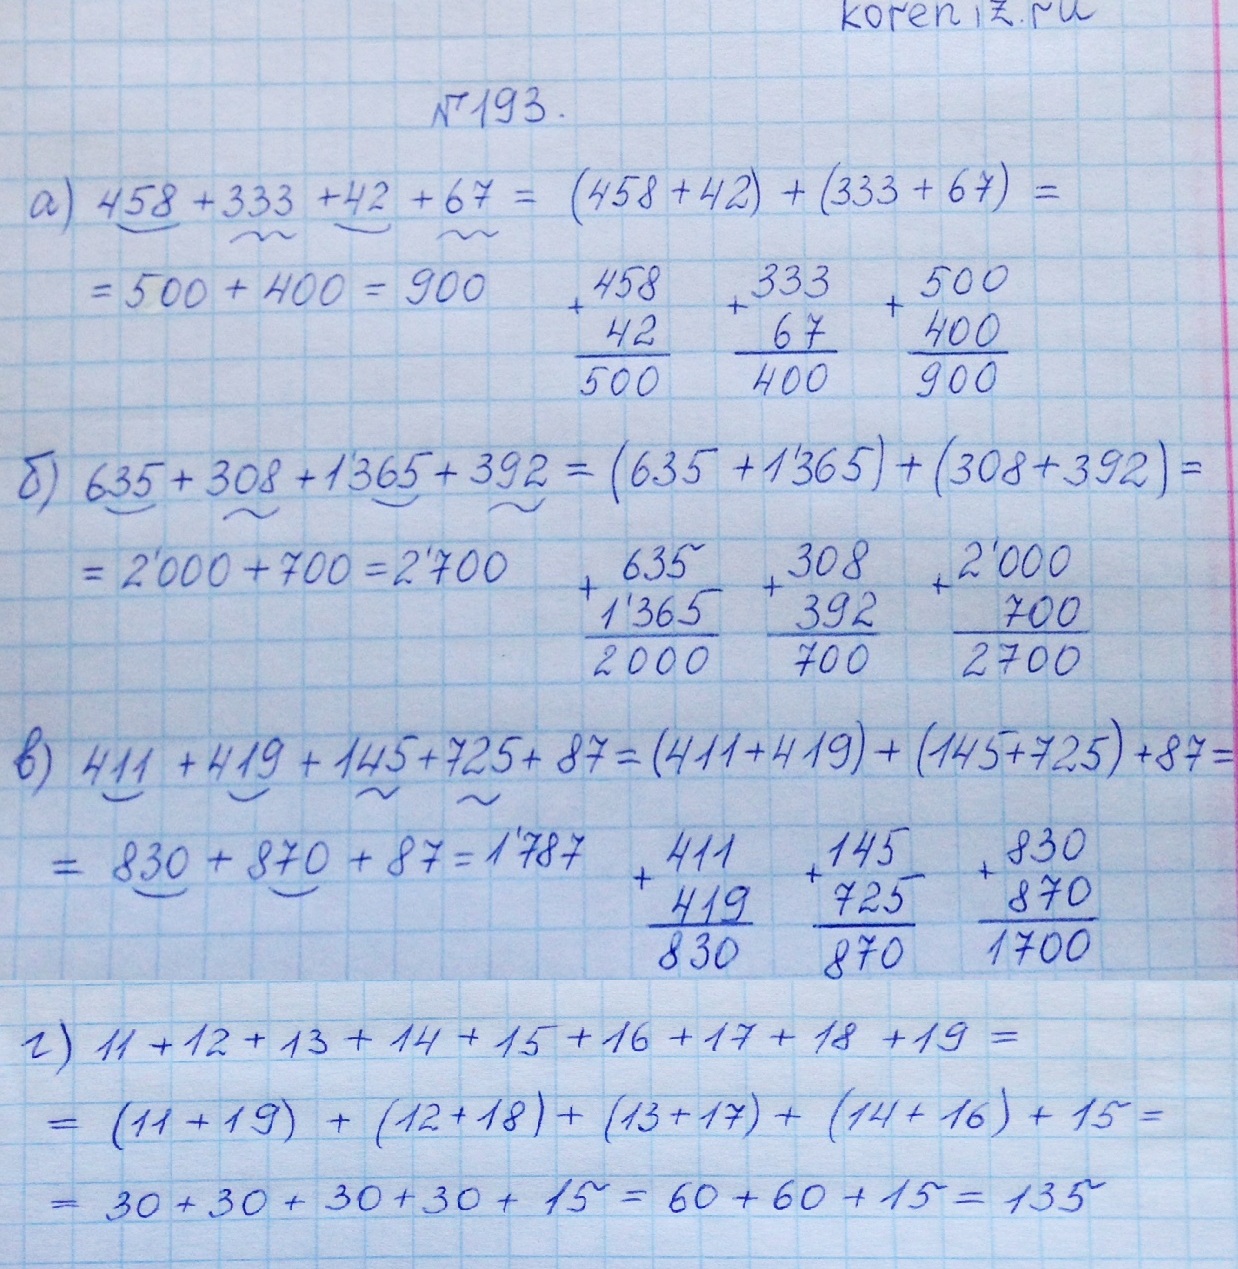 koreniz.ru
№193.
а) 458 + 333 + 42 + 67 = (458 + 42) + (333 + 67) =
= 500 + 400 = 900
+ 458 + 333 + 500
42 67 400
500 400 900
б) 635 + 308 + 1'365 + 392 = (635 + 1'365) + (308 + 392) =
= 2'000 + 700 = 2'700
+ 635 + 308 + 2'000
1'365 392 700
2000 700 2700
в) 411 + 419 + 145 + 725 + 87 = (411 + 419) + (145 + 725) + 87 =
= 830 + 870 + 87 = 1'787
+ 411 + 145 + 830
419 725 870
830 870 1700
г) 11 + 12 + 13 + 14 + 15 + 16 + 17 + 18 + 19 =
= (11 + 19) + (12 + 18) + (13 + 17) + (14 + 16) + 15 =
= 30 + 30 + 30 + 30 + 15 = 60 + 60 + 15 = 135